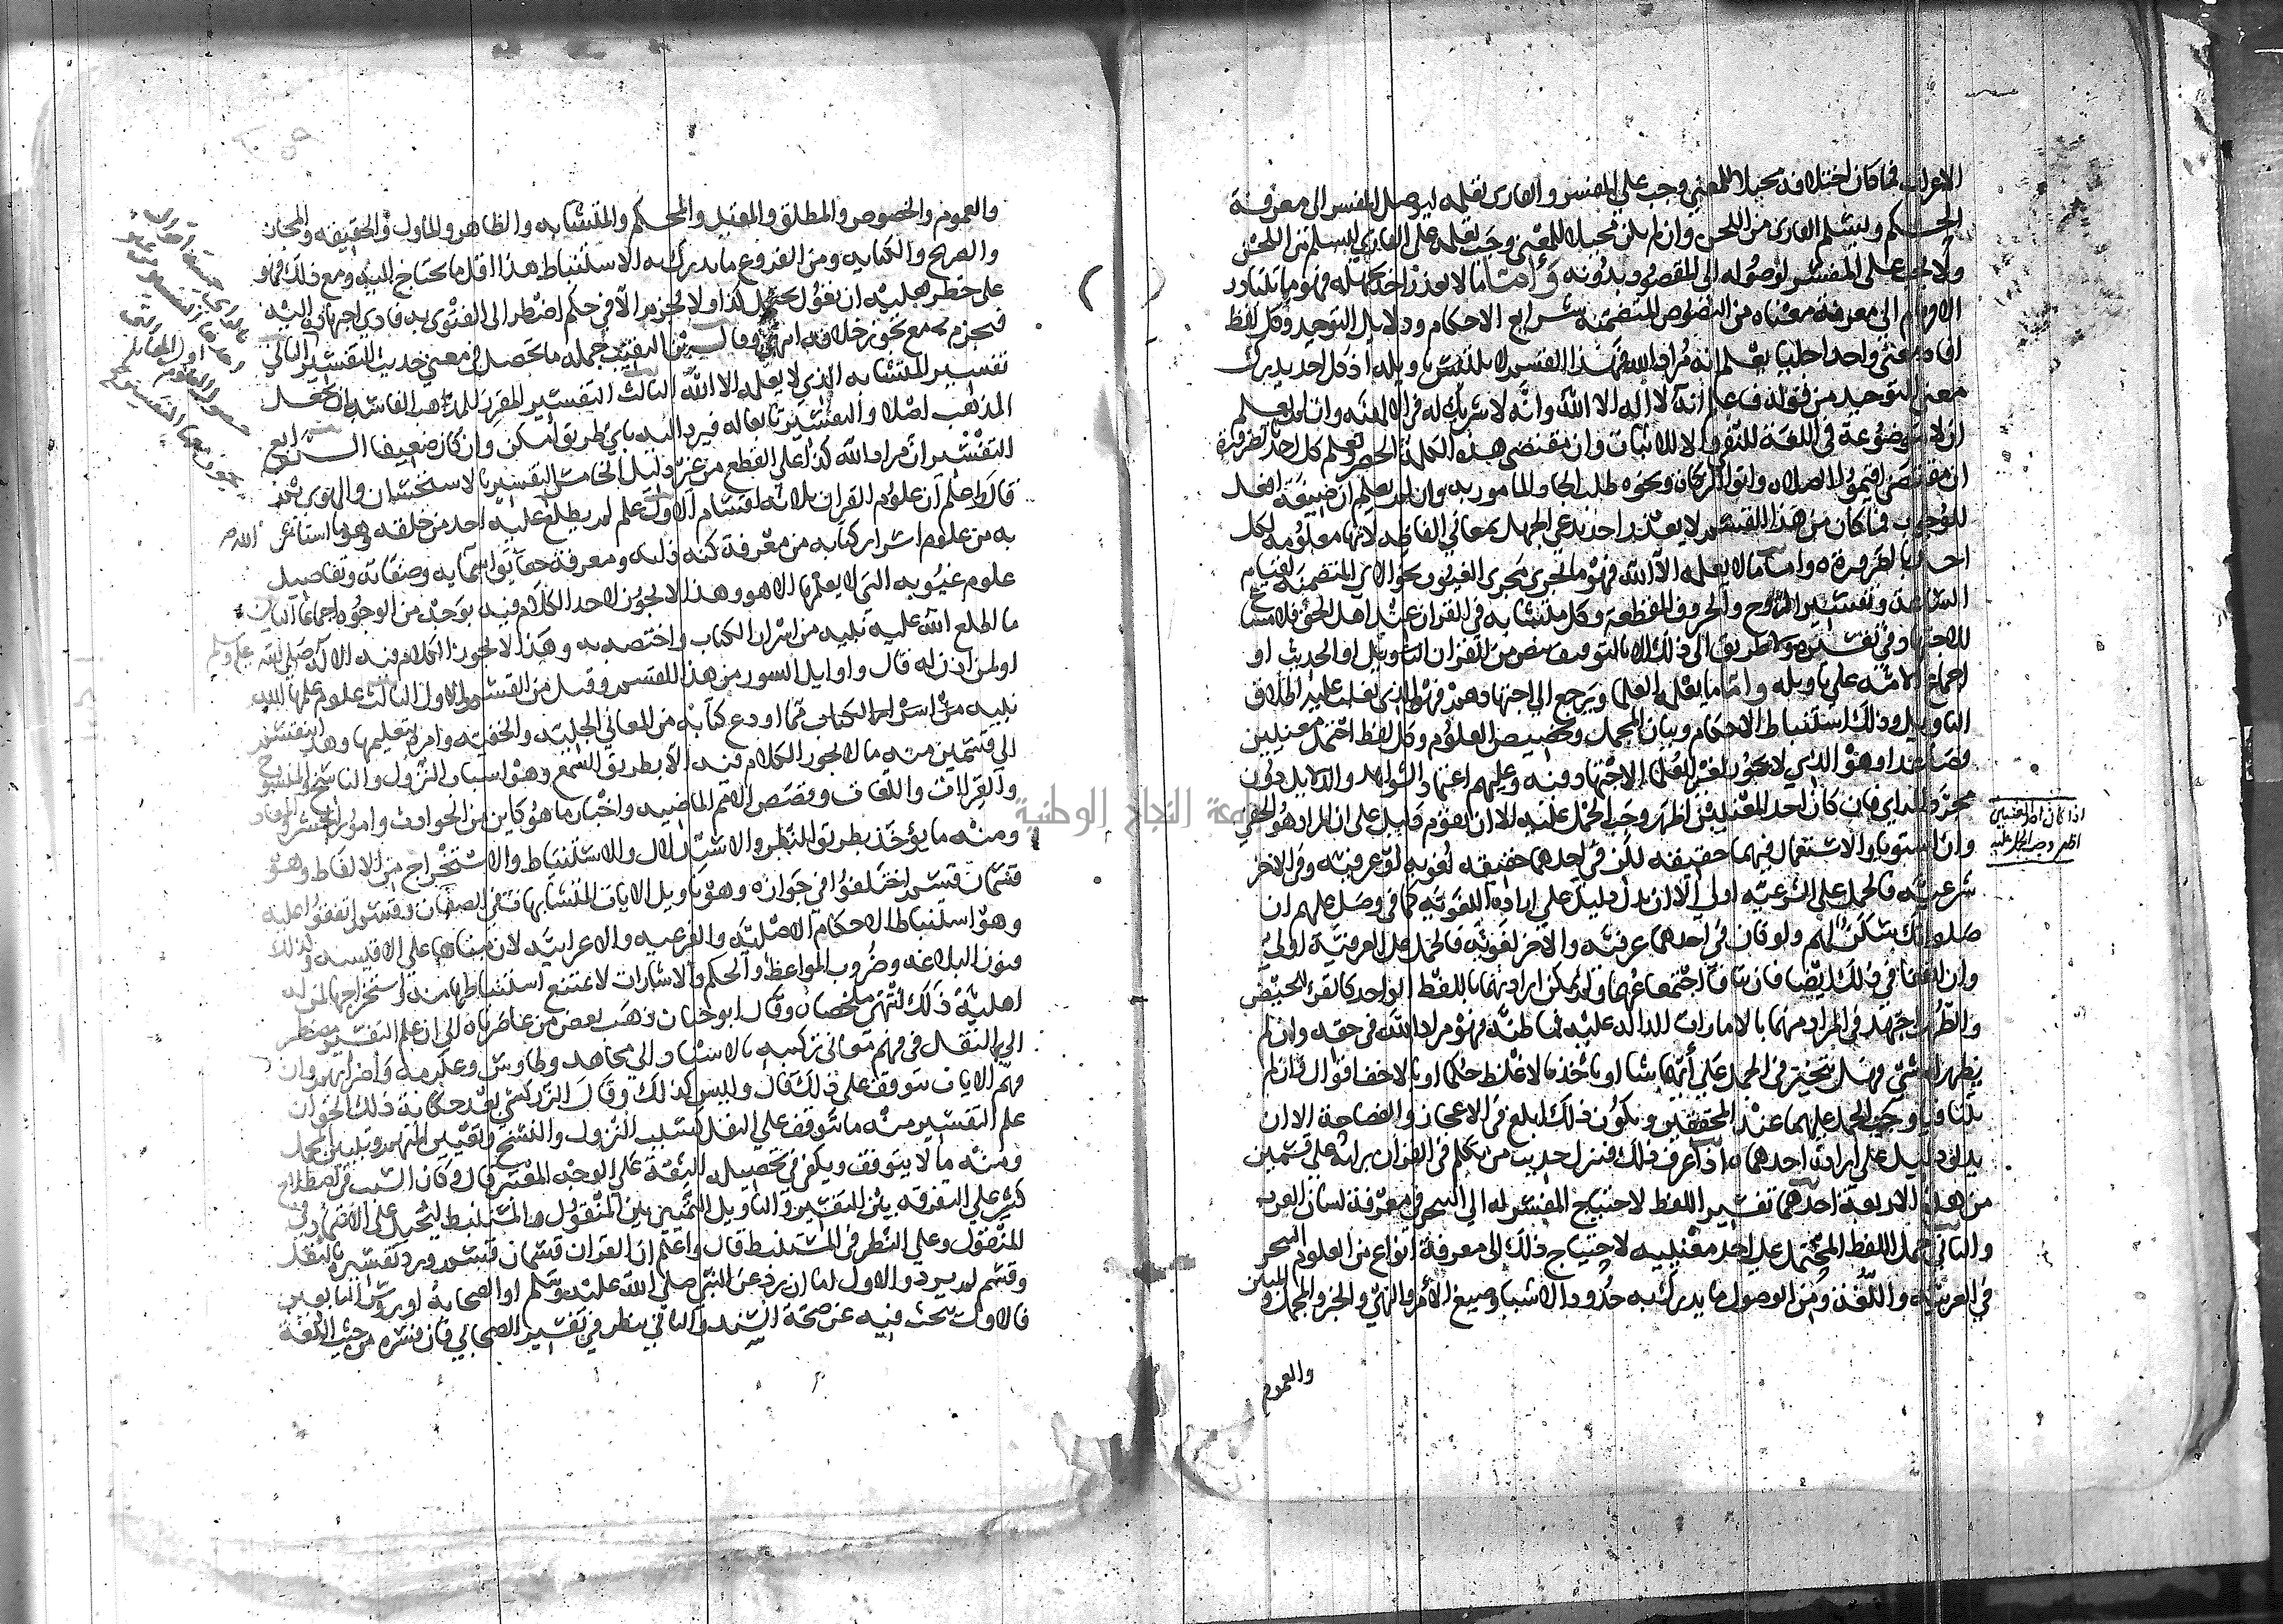 الاعراب فما كان اختلافه محيلا للمعنى وجب على المفسر والقارى تعلمه ليوصل المفسر الى معرفة
الحكم وليسلم القارى من اللحن وان لم يكن محيلا للمعنى وجب تعلمه على القارى ليسلم من اللحن
ولا يجب على المفسر لوصوله الى المقصود بدونه واما ما لا يعذر احد بجهله فهو ما تتبادر
الافهام الى معرفة معناه من النصوص المتضمنة شرايع الاحكام ودلايل التوحيد وكل لفظ
افاد معنى واحدا جليا يعلم انه مراد الله فهذا القسم لا يلتبس تاويله اذ كل احد يدرك
معنى التوحيد من قوله فاعلم انه لا اله الا الله وانه لا شريك له في الالهية وان لم يعلم
ان لا موضوعة في اللغة للنفي والا للاثبات وان مقتضى هذه الكلمة الحصر ويعلم كل احد بالضرورة
ان مقتضى اقيموا الصلاه واتوا الزكاة ونحوه طلب ايجاد المامور به وان لم يعلم ان صيغة افعل
للوجوب فما كان من هذا القسم لا يعذر احد يدعي الجهل بمعاني الفاظه لانها معلومة لكل
احد بالضرورة واما ما لا يعلمه الا الله فهو ما يجري مجرى الغيوب نحو الاي المتضمنة لقيام
الساعة وتفسير الروح والحروف المقطعة وكل متشابه في القران عند اهل الحق فلا مساغ
للاجتهاد في تفسيره ولا طريق الى ذلك الا بالتوقيف بنص من القران او الحديث او
اجماع الامة على تاويله واما ما يعلمه العلما ويرجع الى اجتهادهم فهو الذي يغلب عليه اطلاق
التاويل وذلك استنباط الاحكام وبيان المجمل وتخصيص العموم وكل لفظ احتمل معنيين
فصاعدا وهو الذي لا يجوز لغير العلما الاجتهاد فيه وعليهم اعتماد الشواهد والدلايل دون
مجرد الراي فان كان احد المعنيين اظهر وجب الحمل عليه الا ان يقوم دليل على ان المراد هو الخفي
اذا كان احد المعنيين
اظهر وجب الحمل عليه
وان استويا والاستعمال فيهما حقيقه لكن في احدهما حقيقه لغويه او عرفيه وفي الاخر
شرعيه فالحمل على الشرعيه اولى الا ان يدل دليل على ارادة اللغويه كما في وصل عليهم ان
صلواتك سكن لهم ولو كان في احدهما عرفيه والاخر لغويه فالحمل على العرفية اولى
وان اتفقا في ذلك ايضا فان تنافى اجتمعاعهما ولم يمكن ارادتهما باللفظ الواحد كالقرء للحيض
والطهر اجتهد في المراد منهما بالامارات الداله عليه فما ظنه فهو مراد الله في حقه وان لم
يظهر له شي فهل يتخير في الحمل على ايهما شا او ياخذ بالاغلظ حكما او بالاخف اقوال وان لم
يتنافيا وجب الحمل عليهما عند المحققين ويكون ذلك ابلغ في الاعجاز والفصاحة الا ان
يدل دليل على ارادة احدهما اذا عرف ذلك فينزل حديث من تكلم في القران برايه على قسمين
من هذه الاربعة احدهما تفسير اللفظ لاحتياج المفسر له الى التبحر في معرفة لسان العرب
والثاني حمل اللفظ المحتمل على احد معنييه لاحتياج ذلك الى معرفة انواع من العلوم التبحر
في العربيه واللغة ومن الاصول ما يدرك به حدود الاشيا وصيغ الامر والنهي والخبر والمجمل والمبين
والعموم
والعموم والخصوص والمطلق والمقيد والمحكم والمتشابه والظاهر والماول والحقيقه والمجاز
والصريح والكنايه ومن الفروع ما يدرك به الاستنباط هذا اقل ما يحتاج اليه ومع ذلك فهو
على خطر فعليه ان يقول يحتمل كذا ولا يجزم الا في حكم اضطر الى الفتوى به فادى اجتهاده اليه
فيجزم به مع تجويز خلافه انتهى وقال ابن النقيب جملة ما تحصل في معنى حديث التفسير بالراي
تفسير المتشابه الذي لا يعلمه الا الله الثالث التفسير المقرر للمذهب الفاسد بان يجعل
المذهب اصلا والتفسير تابعا له فيرد اليه باي طريق امكن وان كان ضعيفا الرابع
التفسير ان مراد الله كذا على القطع من غير دليل الخامس التفسير بالاستحسان والهوى ثم
قال واعلم ان علوم القران ثلاثه اقسام الاول علم لم يطلع عليه احد من خلقه وهو ما استاثر الله
به من علوم اسرار كتابه من معرفة كنه ذاته ومعرفة حقايق اسمايه وصفاته وتفاصيل
علوم غيوبه التي لا يعلمها الا هو وهذا لا يجوز لاحد الكلام فيه بوجه من الوجوه اجماعا الثاني
ما اطلع الله عليه نبيه من اسرار الكتاب واختصه به وهذا لا يجوز الكلام فيه الا له صلى الله عليه وسلم
او لمن اذن له قال واوايل السور من هذا القسم وقيل من القسم الاول الثالث علوم علمها الله
نبيه من اسرار الكتاب مما اودع كتابه من المعاني الجليه والخفيه وامره بتعليمها وهذا ينقسم
الى قسمين منه ما لا يجوز الكلام فيه الا بطريق السمع وهو اسباب النزول والناسخ والمنسوخ
والقراات واللغات وقصص الامم الماضيه واخبار ما هو كاين من الحوادث وامور الحشر والمعاد
ومنه ما يؤخذ بطريق النظر والاستدلال والاستنباط والاستخراج من الالفاظ وهو
قسمان قسم اختلفوا في جوازه وهو تاويل الايات المتشابهات في الصفات وقسم اتفقوا عليه
وهو استنباط الاحكام الاصليه والفرعيه والاعرابيه لان مبناها على الاقيسه وكذلك
فنون البلاغه وضروب المواعظ والحكم والاشارات لا يمتنع استنباطها منه واستخراجها لمن له
اهلية ذلك انتهى ملخصا وقال ابو حيان ذهب بعض من عاصرناه الى ان علم التفسير مضطر
الى النقل في فهم معاني تركيبه بالاسناد الى مجاهد وطاوس وعكرمه واضرابهم وان
فهم الايات يتوقف على ذلك قال وليس كذلك وقال الزركشي بعد حكاية ذلك الحق ان
علم التفسير منه ما يتوقف على النقل كسبب النزول والنسخ وتعيين المبهم وتبيين المجمل
ومنه ما لا يتوقف ويكفي في تحصيله الثقة على الوجه المعتبر قال وكان السبب في اصطلاح
كثير على التفرقه بين التفسير والتاويل التمييز بين المنقول والمستنبط ليحيل على الاعتماد في
المنقول وعلى النظر في المستنبط قال واعلم ان القران قسمان قسم ورد تفسيره بالنقل
وقسم لم يرد والاول اما ان يرد عن النبي صلى الله عليه وسلم او الصحابة او رؤس التابعين
فالاول يبحث فيه عن صحة السند والثاني ينظر في تفسير الصحابي فان فسره من حيث اللغة
جامعة النجاح الوطنية